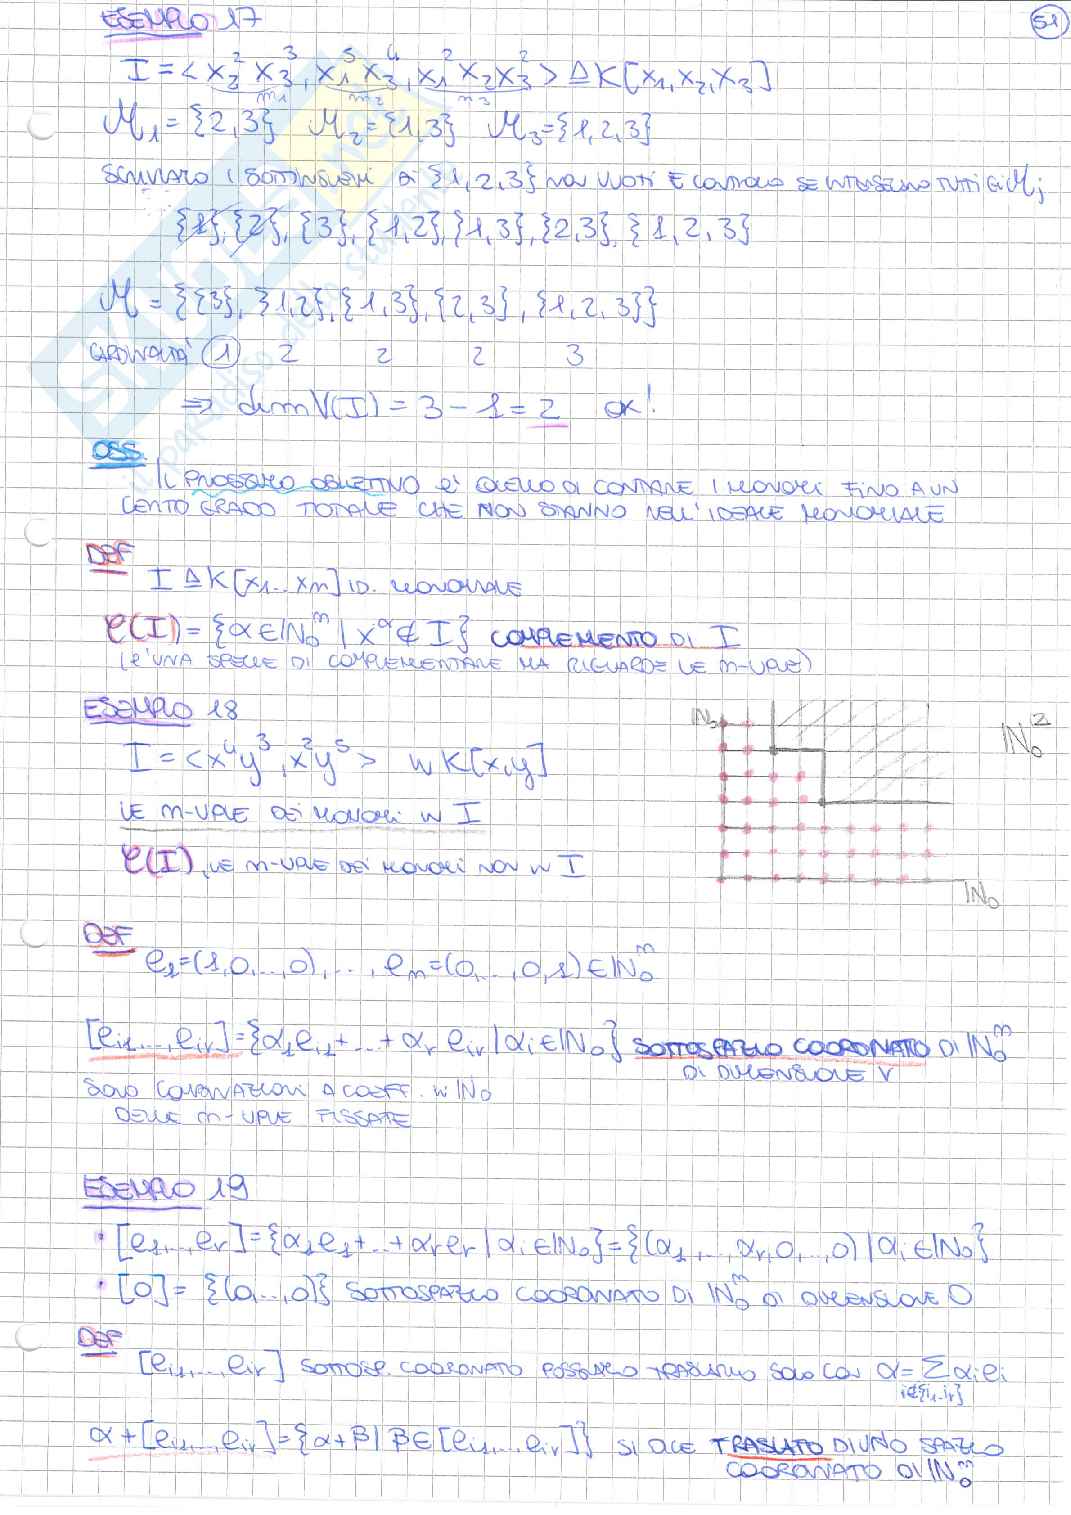 51
ESEMPIO 17
I = < x₂² x₃³, x₁⁵ x₃⁴, x₁² x₂ x₃² > ⊴ K[x₁, x₂, x₃]
m₁ m₂ m₃
M₁ = {2,3} M₂ = {1,3} M₃ = {1,2,3}
SCRIVIAMO I SOTTINSIEMI DI {1,2,3} NON VUOTI E CONTROLLO SE INTERSECANO TUTTI GLI Mj
{1}, {2}, {3}, {1,2}, {1,3}, {2,3}, {1,2,3}
M = {{3}, {1,2}, {1,3}, {2,3}, {1,2,3}}
CARDINALITA' 1 2 2 2 3
⇒ dim V(I) = 3 - 1 = 2 OK!
OSS.
IL PROSSIMO OBIETTIVO E' QUELLO DI CONTARE I MONOMI FINO A UN
CERTO GRADO TOTALE CHE NON STANNO NELL'IDEALE MONOMIALE
DEF
I ⊴ K[x₁...xₙ] ID. MONOMIALE
C(I) = {α ∈ ℕ₀ⁿ | x^α ∉ I} COMPLEMENTO DI I
(E' UNA SPECIE DI COMPLEMENTARE MA RIGUARDA LE n-UPLE)
ESEMPIO 18
I = < x⁴y³, x²y⁵ > IN K[x,y]
LE n-UPLE DEI MONOMI IN I
C(I), LE n-UPLE DEI MONOMI NON IN I
ℕ₀
ℕ₀²
ℕ₀
DEF
e₁ = (1,0,...,0), ..., eₙ = (0,...,0,1) ∈ ℕ₀ⁿ
[e_i1,...,e_ir] = {α₁e_i1 + ... + αᵣe_ir | αᵢ ∈ ℕ₀} SOTTOSPAZIO COORDINATO DI ℕ₀ⁿ
DI DIMENSIONE r
SONO COMBINAZIONI A COEFF. IN ℕ₀
DELLE n-UPLE FISSATE
ESEMPIO 19
• [e₁,...,eᵣ] = {α₁e₁ + ... + αᵣeᵣ | αᵢ ∈ ℕ₀} = {(α₁,...,αᵣ,0,...,0) | αᵢ ∈ ℕ₀}
• [0] = {(0,...,0)} SOTTOSPAZIO COORDINATO DI ℕ₀ⁿ DI DIMENSIONE 0
DEF
[e_i1,...,e_ir] SOTTOSP. COORDINATO POSSIAMO TRASLARLO SOLO CON α = Σ αᵢeᵢ
i∉{i₁...iᵣ}
α + [e_i1,...,e_ir] = {α + β | β ∈ [e_i1,...,e_ir]} SI DICE TRASLATO DI UNO SPAZIO
COORDINATO DI ℕ₀ⁿ